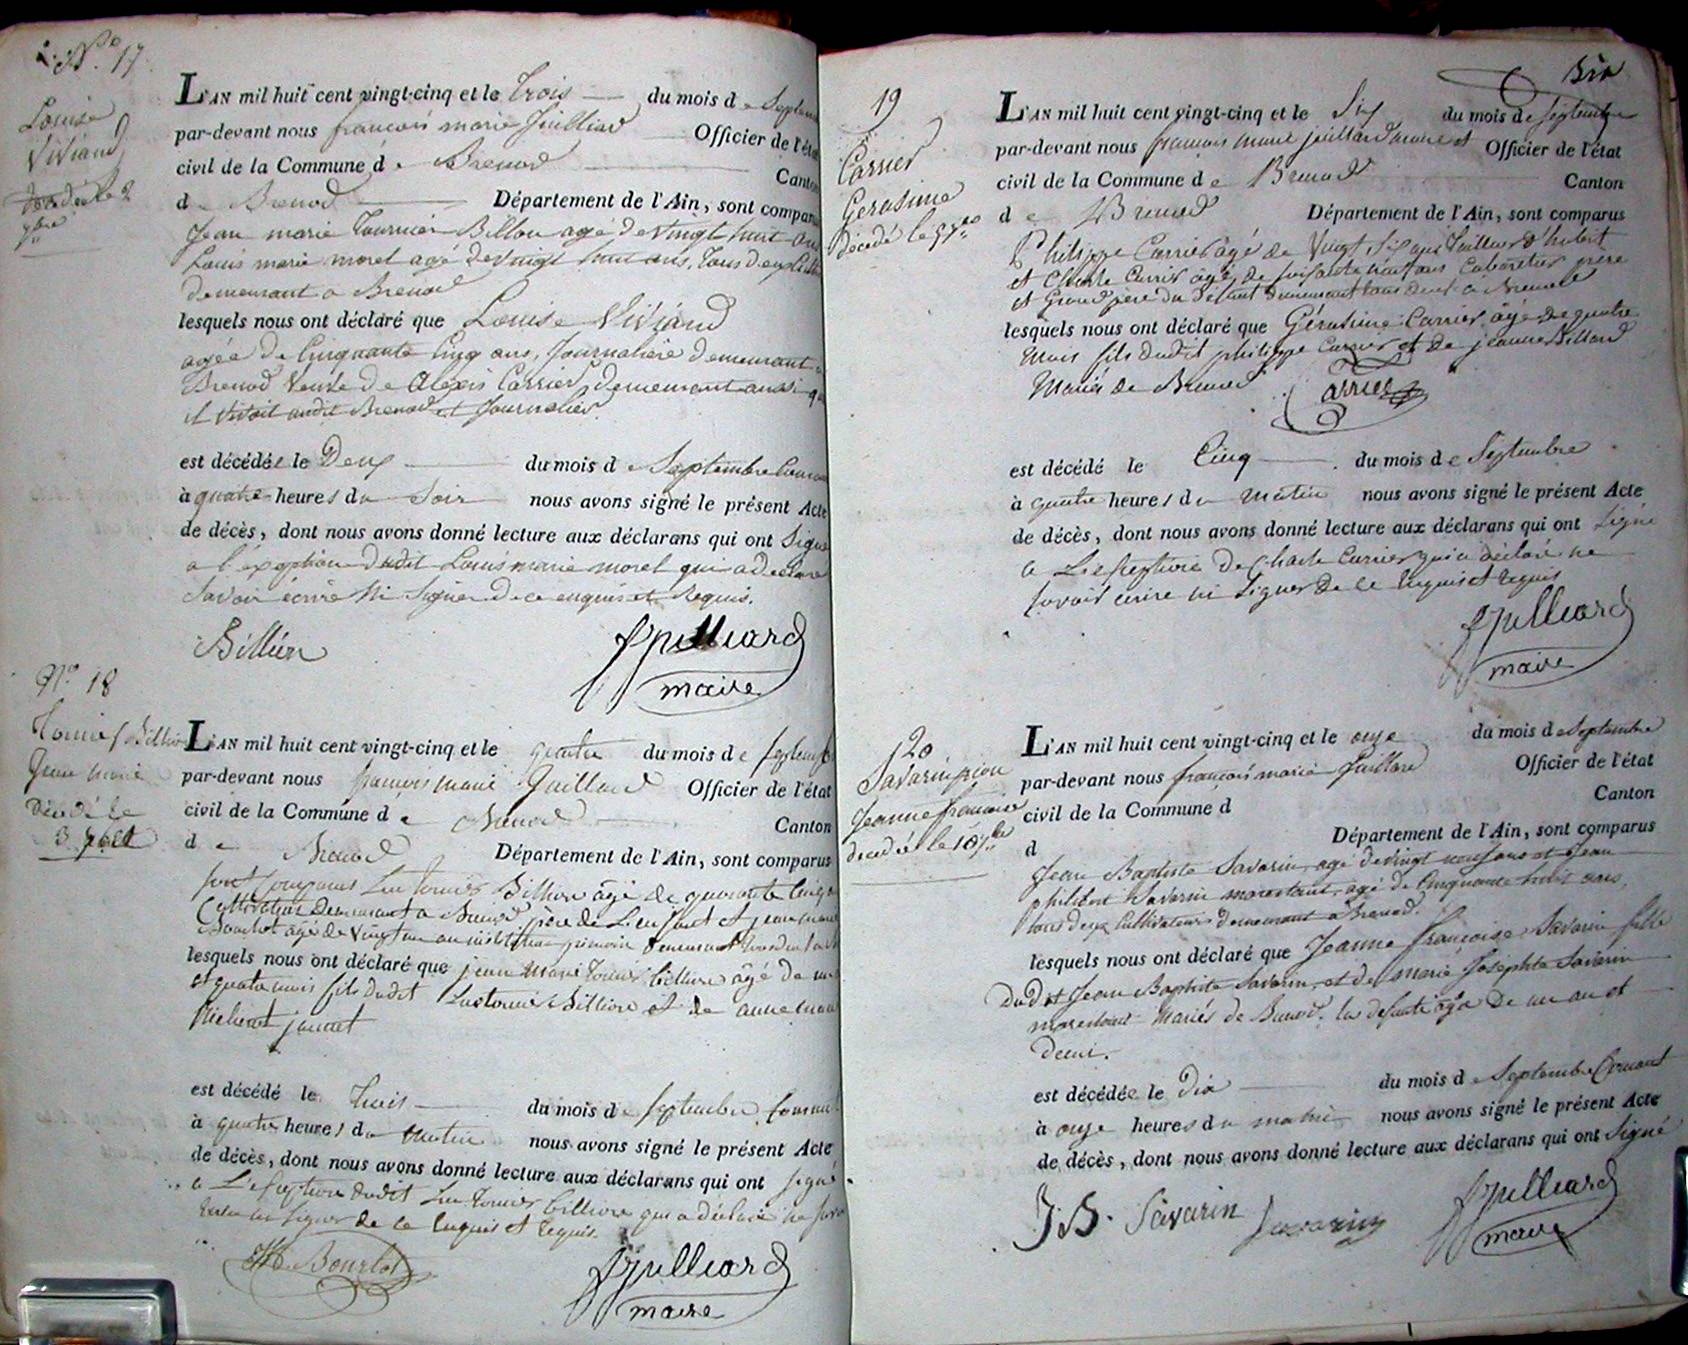 N.° 17
Louise
Viviand
décédée le 2
7bre
L'AN mil huit cent vingt-cinq et le trois du mois de Septem
par-devant nous francois marie Juilliard Officier de l'état
civil de la Commune de Brenod Canton
de Brenod Département de l'Ain, sont comparus
Jean marie Tournier Billon agé de vingt huit ans
Louis marie morel agé de vingt huit ans, tous deux
demeurant a Brenod
lesquels nous ont déclaré que Louise Viviand
agée de Cinquante Cinq ans, Journalière demeurant a
Brenod Veuve de Alexis Carrier, demeurant aussi
il vivoit audit Brenod et Journalier
est décédée le Deux du mois de Septembre Courant
à quatre heures du Soir nous avons signé le présent Acte
de décès, dont nous avons donné lecture aux déclarans qui ont Signé
a l'exception dudit Louis marie morel qui a déclaré
Savoir écrire Ni Signer de ce enquis et Requis.
Billion
fjuilliard
maire
N.° 18
Tournier Billion
Jean marie
Décédé le
3 7bre
L'AN mil huit cent vingt-cinq et le quatre du mois de septemb
par-devant nous françois marie Juillard Officier de l'état
civil de la Commune de Brenod Canton
de Brenod Département de l'Ain, sont comparus
sont comparus Luc Tournier Billion âgé de quarante Cinq
Cultivateur Demeurant a Brenod père de L'enfant et jean marie
Bourlot âgé de Vingt un an instituteur primaire demeurant
lesquels nous ont déclaré que jean Marie Tournier billion âgé de un
et quatre mois fils dudit Luc tournier Billion et de anne marie
jannet
est décédé le Trois du mois de septembre Courant
à quatre heures du Matin nous avons signé le présent Acte
de décès, dont nous avons donné lecture aux déclarans qui ont signé
a L'exception dudit Luc Tournier billion qui a déclaré ne savoir
Ecrire ni signer de ce Enquis et Requis.
Bourlot
fjuilliard
maire
dix
19
Carrier
Gerasime
décédé le 5 7bre
L'AN mil huit cent vingt-cinq et le Six du mois de septembre
par-devant nous françois marie juillard maire et Officier de l'état
civil de la Commune de Brenod Canton
de Brenod Département de l'Ain, sont comparus
Philippe Carrier âgé de Vingt, six ans Tailleur d'habit
et Charle Carrier âgé, de soixante huit ans Cabaretier père
et Grand père du défunt demeurant tous deux a Brenod
lesquels nous ont déclaré que Gérasime Carrier âgé de quatre
mois fils dudit philippe Carrier et de jeanne Billard
Mariés de Brenod
Carrier
est décédé le Cinq du mois de Septembre
à quatre heures du matin nous avons signé le présent Acte
de décès, dont nous avons donné lecture aux déclarans qui ont Signé
a L'exception de Charle Carrier qui a déclaré ne
savoir écrire ni signer de ce Enquis et Requis
fjuilliard
maire
20
Savarin
Jeanne françoise
décédée le 10 7bre
L'AN mil huit cent vingt-cinq et le onze du mois de septembre
par-devant nous françois marie Juillard Officier de l'état
civil de la Commune d Canton
d Département de l'Ain, sont comparus
Jean Baptiste Savarin, agé de vingt neuf ans et Jean
philibert Savarin morestant, agé de Cinquante huit ans,
tous deux Cultivateurs demeurant a Brenod.
lesquels nous ont déclaré que Jeanne françoise Savarin fille
Dudit Jean Baptiste Savarin, et de marie Josephte Savarin
morestant Mariés de Brenod. la defunte agée De un an et
demi.
est décédée le Dix du mois de Septembre Courant
à onze heures du matin nous avons signé le présent Acte
de décès, dont nous avons donné lecture aux déclarans qui ont Signé
J B. Savarin
Savarin
fjuilliard
maire